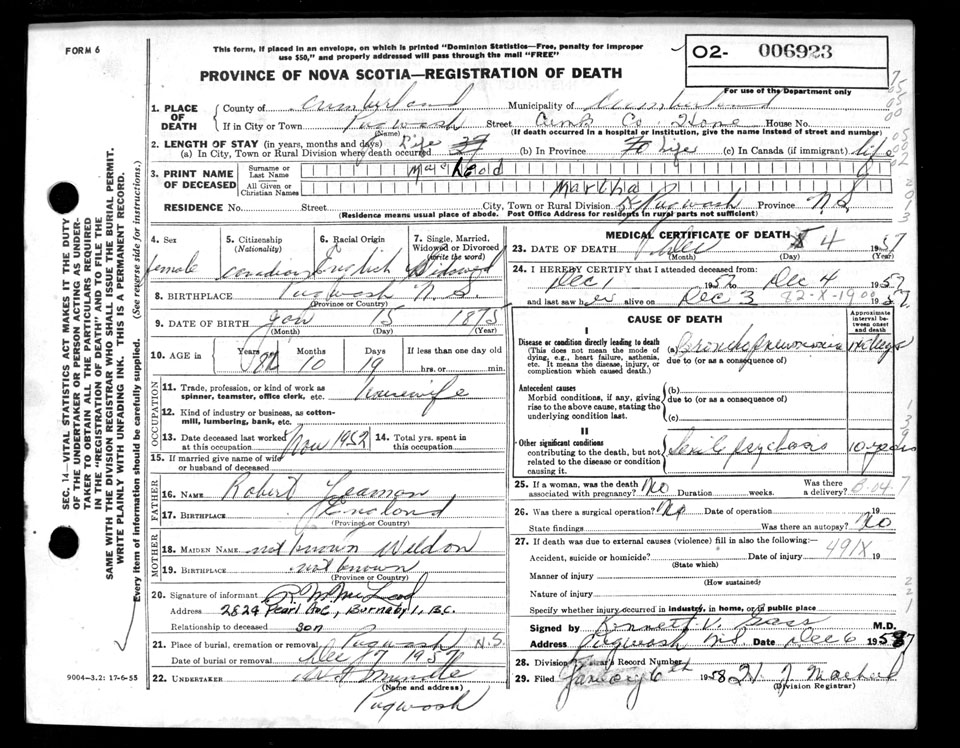 FORM 6
This form, if placed in an envelope, on which is printed "Dominion Statistics—Free, penalty for improper
use $50," and properly addressed will pass through the mail "FREE"
O2- 006923
For use of the Department only
PROVINCE OF NOVA SCOTIA—REGISTRATION OF DEATH
1. PLACE OF DEATH
County of Cumberland Municipality of Cumberland
If in City or Town Pugwash Street Cumb Co. Home House No.
(Name) (If death occurred in a hospital or institution, give the name instead of street and number)
2. LENGTH OF STAY (in years, months and days)
(a) In City, Town or Rural Division where death occurred Life (b) In Province Life (c) In Canada (if immigrant) life
3. PRINT NAME OF DECEASED
Surname or Last Name MacLeod
All Given or Christian Names Martha
RESIDENCE No. Street City, Town or Rural Division Pugwash Province N.S.
(Residence means usual place of abode. Post Office Address for residents in rural parts not sufficient)
4. Sex female
5. Citizenship (Nationality) Canadian
6. Racial Origin English
7. Single, Married, Widowed or Divorced (write the word) Widowed
8. BIRTHPLACE Pugwash N.S.
(Province or Country)
9. DATE OF BIRTH Jan 15 1875
(Month) (Day) (Year)
10. AGE in Years 82 Months 10 Days 19 If less than one day old
hrs. or min.
OCCUPATION
11. Trade, profession, or kind of work as
spinner, teamster, office clerk, etc. Housewife
12. Kind of industry or business, as cotton-
mill, lumbering, bank, etc.
13. Date deceased last worked
at this occupation Nov 1952
14. Total yrs. spent in
this occupation
15. If married give name of wife
or husband of deceased
FATHER
16. NAME Robert Leamon
17. BIRTHPLACE England
(Province or Country)
MOTHER
18. MAIDEN NAME not known Weldon
19. BIRTHPLACE not known
(Province or Country)
20. Signature of informant R. M. McLeod
Address 2824 Pearl Ave, Burnaby 1, B.C.
Relationship to deceased son
21. Place of burial, cremation or removal Pugwash N.S.
Date of burial or removal Dec 7 1957
22. UNDERTAKER
(Name and address)
Pugwash
9004—3.2: 17-6-55
SEC. 14—VITAL STATISTICS ACT MAKES IT THE DUTY
OF THE UNDERTAKER OR PERSON ACTING AS UNDER-
TAKER TO OBTAIN ALL THE PARTICULARS REQUIRED
IN THE "REGISTRATION OF DEATH" AND TO FILE THE
SAME WITH THE DIVISION REGISTRAR WHO SHALL ISSUE THE BURIAL PERMIT.
WRITE PLAINLY WITH UNFADING INK. THIS IS A PERMANENT RECORD.
Every item of information should be carefully supplied. (See reverse side for instructions.)
MEDICAL CERTIFICATE OF DEATH
23. DATE OF DEATH Dec 4 1957
(Month) (Day) (Year)
24. I HEREBY CERTIFY that I attended deceased from:
Dec 1 1957 to Dec 4 1957
and last saw her alive on Dec 3 1957
82-X-1900
CAUSE OF DEATH
Approximate interval between onset and death
I
Disease or condition directly leading to death
(This does not mean the mode of
dying, e.g., heart failure, asthenia,
etc. It means the disease, injury, or
complication which caused death.)
(a) Bronchopneumonia
due to (or as a consequence of)
Antecedent causes
Morbid conditions, if any, giving
rise to the above cause, stating the
underlying condition last.
(b)
due to (or as a consequence of)
(c)
II
Other significant conditions
contributing to the death, but not
related to the disease or condition
causing it.
Senile psychosis 10 years
25. If a woman, was the death
associated with pregnancy? No Duration weeks. Was there
a delivery?
26. Was there a surgical operation? No Date of operation 19
State findings Was there an autopsy? No
27. If death was due to external causes (violence) fill in also the following:—
491X
Accident, suicide or homicide? Date of injury 19
(State which)
Manner of injury
(How sustained)
Nature of injury
Specify whether injury occurred in industry, in home, or in public place
Signed by M.D.
Address Pugwash N.S. Date Dec 6 1957
28. Division Registrar's Record Number
29. Filed January 6th 1958
(Division Registrar)